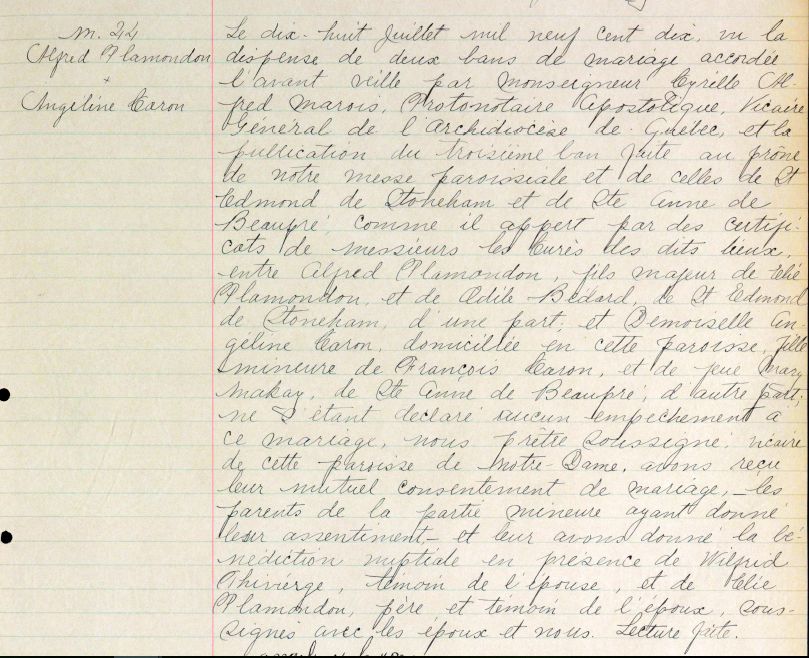 m. 24
Alfred Plamondon
+
Angéline Caron
Le dix-huit Juillet mil neuf cent dix, vu la
dispense de deux bans de mariage accordée
l'avant veille par Monseigneur Cyrille Al-
fred Marois, Protonotaire Apostolique, Vicaire
Général de l'Archidiocèse de Québec, et la
publication du troisième ban faite au prône
de notre messe paroissiale et de celles de St
Edmond de Stoneham et de Ste Anne de
Beaupré, comme il appert par des certifi-
cats de messieurs les Curés des dits lieux,
entre Alfred Plamondon, fils majeur de Elie
Plamondon, et de Odile Bédard, de St Edmond
de Stoneham, d'une part; et Demoiselle An-
géline Caron, domiciliée en cette paroisse, fille
mineure de François Caron, et de feue Mary
Makay, de Ste Anne de Beaupré, d'autre part;
ne s'étant déclaré aucun empêchement à
ce mariage, nous prêtre soussigné, vicaire
de cette paroisse de Notre-Dame, avons reçu
leur mutuel consentement de mariage, — les
parents de la partie mineure ayant donné
leur assentiment, — et leur avons donné la bé-
nédiction nuptiale en présence de Wilfrid
Thivierge, témoin de l'épouse, et de Elie
Plamondon, père et témoin de l'époux, sous-
signés avec les époux et nous. Lecture faite.